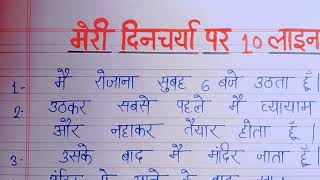 मेरी दिनचर्या पर 10 लाइन
1- मै रोजाना सुबह 6 बजे उठता हूँ।
2- उठकर सबसे पहले मै व्यायाम
और नहाकर तैयार होता हूँ।
3- उसके बाद मै मंदिर जाता हूँ।